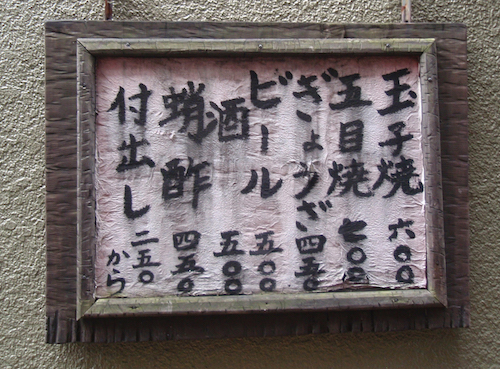 玉子焼 六〇〇
五目焼 七〇〇
ぎょうざ 四五〇
ビール 五〇〇
酒 五〇〇
蛸酢 四五〇
付出し 二五〇から